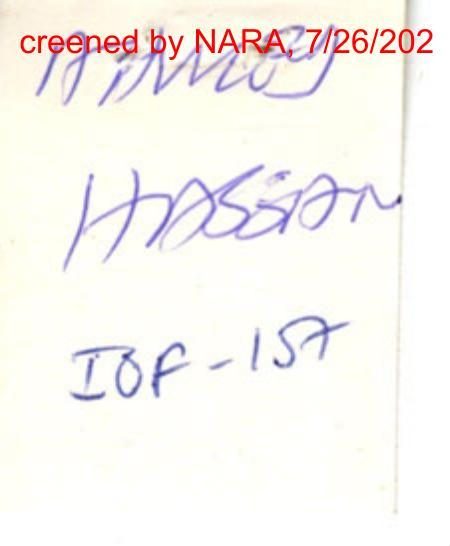 creened by NARA, 7/26/202
HASSAN
IOF-157